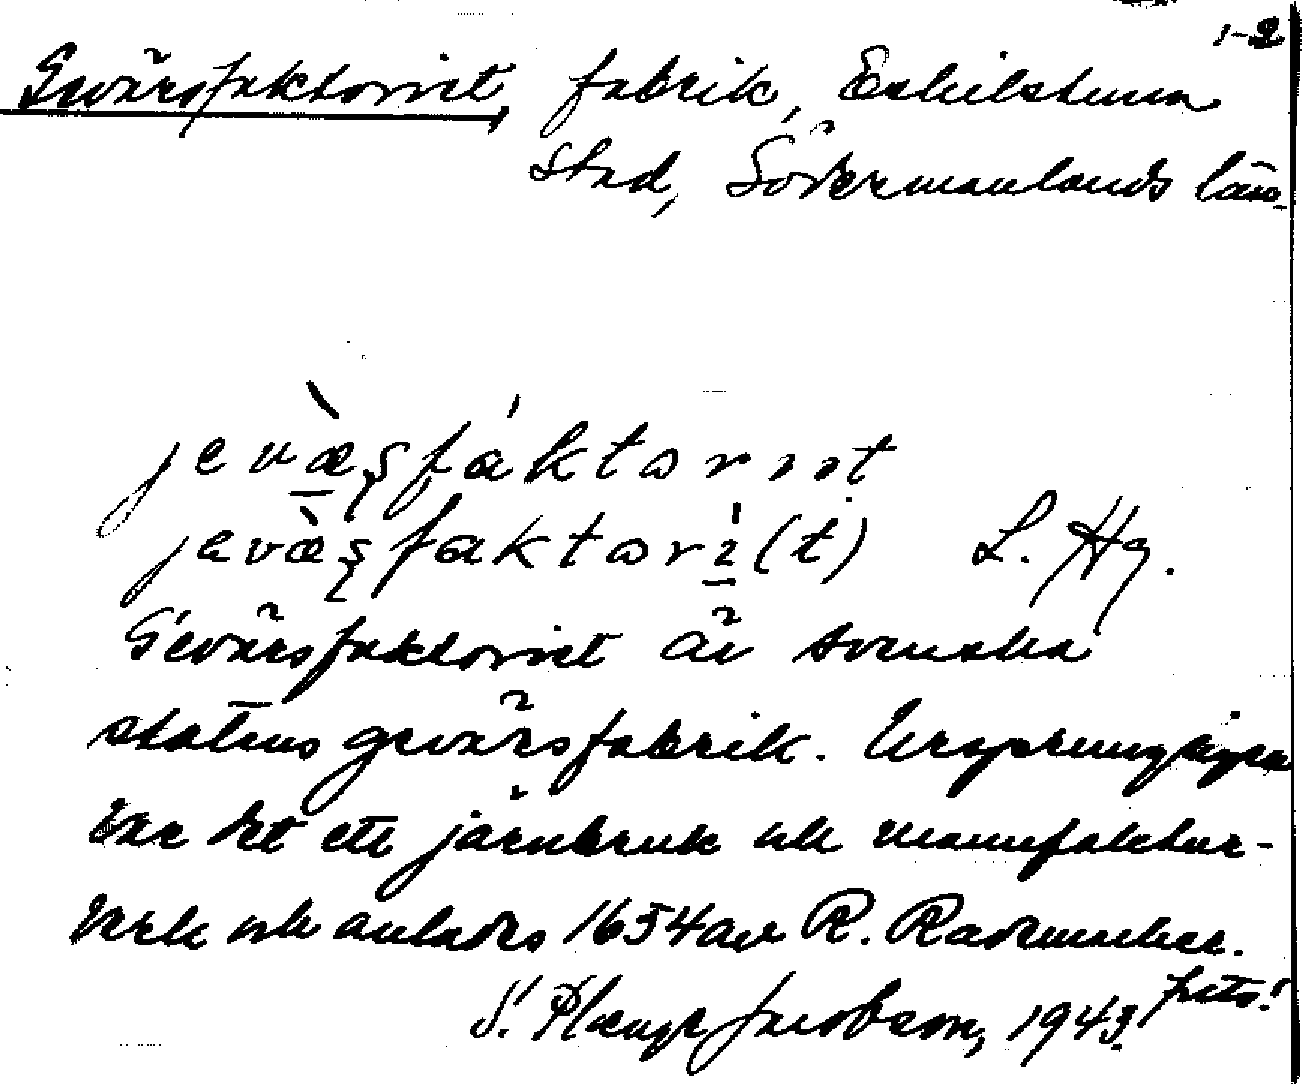 1-2
Gevärsfaktoriet, fabrik, Eskilstuna
stad, Södermanlands län.
jevæ̀ʂfáktoriet
jevæ̀ʂfaktorí(t) L. Hg.
Gevärsfaktoriet är svenska
statens gevärsfabrik. Ursprungligen
var det ett järnbruk och manufaktur-
verk och anlades 1654 av R. Rademacher.
S. Jacobson, 1943. forts!